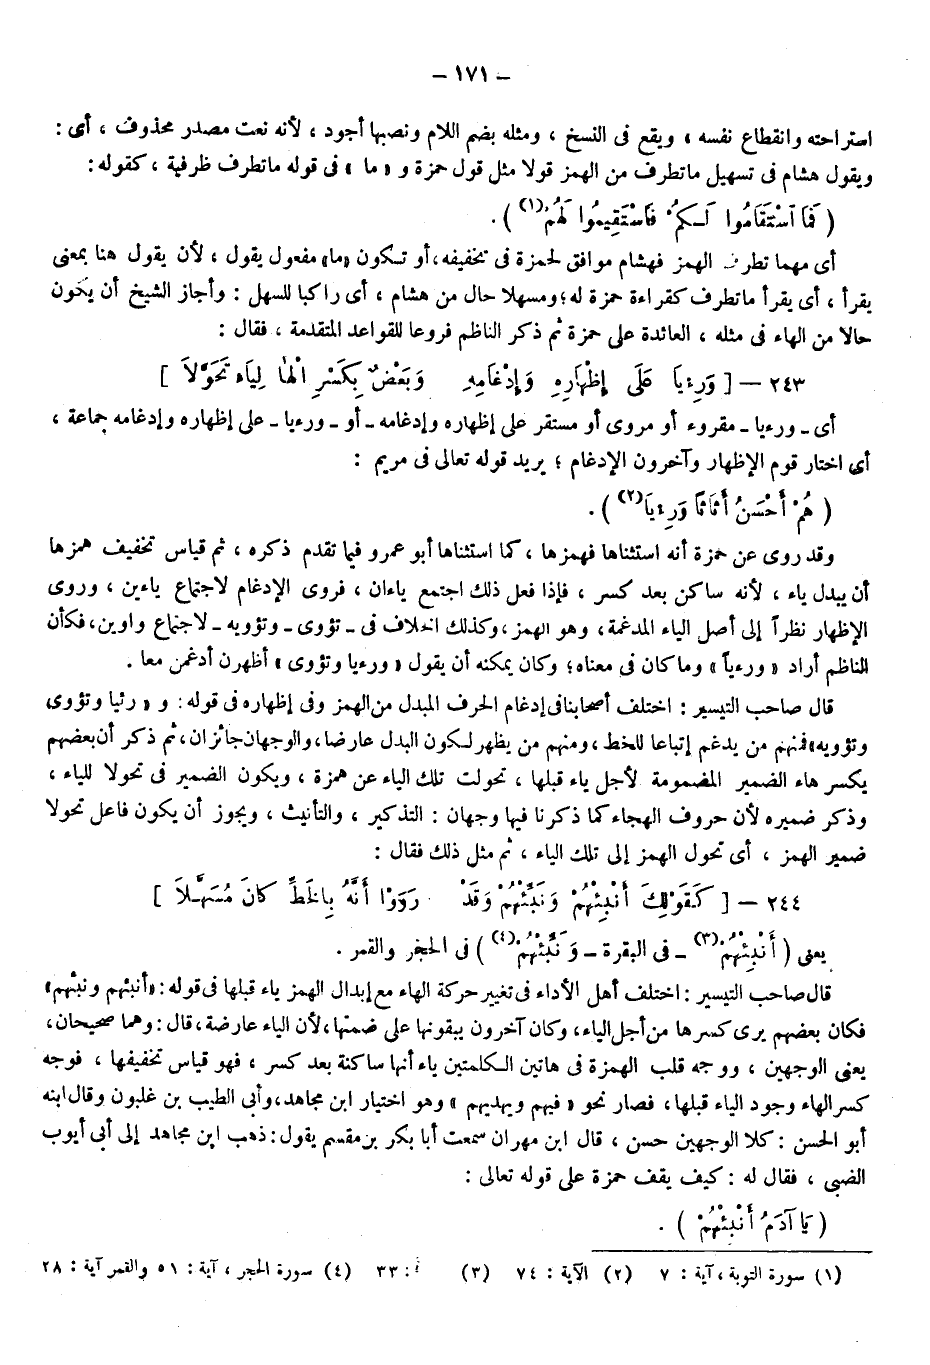 – ١٧١ –
استراحته وانقطاع نفسه ، ويقع فى النسخ ، ومثله بضم اللام ونصبها أجود ، لأنه نعت مصدر محذوف ، أى :
ويقول هشام فى تسهيل ماتطرف من الهمز قولا مثل قول حمزة و « ما » فى قوله ماتطرف ظرفية ، كقوله :
( فَمَا اَسْتَقَامُوا لَكُمْ فَاسْتَقِيمُوا لَهُمْ(١) ) .
أى مهما تطرف الهمز فهشام موافق لحمزة فى تخفيفه،أو تكون «ما» مفعول يقول ، لأن يقول هنا بمعنى
يقرأ ، أى يقرأ ماتطرف كقراءة حمزة له؛ومسهلا حال من هشام ، أى راكبا للسهل : وأجاز الشيخ أن يكون
حالا من الهاء فى مثله ، العائدة على حمزة ثم ذكر الناظم فروعا للقواعد المتقدمة ، فقال :
٢٤٣ – [ وَرِءْيَا عَلَى إِظْهَارِهِ وَإِدْغَامِهِ وَبَعْضٌ بِكَسْرِ الْهَا لِيَاءٍ تَحَوَّلاَ ]
أى ـ ورءيا ـ مقروء أو مروى أو مستقر على إظهاره وإدغامه ـ أو ـ ورءيا ـ على إظهاره وإدغامه جماعة ،
أى اختار قوم الإظهار وآخرون الإدغام ؛ يريد قوله تعالى فى مريم :
( هُمْ أَحْسَنُ أَثَاثًا وَرِءْيَا(٢) ) .
وقد روى عن حمزة أنه استثناها فهمزها ، كما استثناها أبو عمرو فيما تقدم ذكره ، ثم قياس تخفيف همزها
أن يبدل ياء ، لأنه ساكن بعد كسر ، فإذا فعل ذلك اجتمع ياءان ، فروى الإدغام لاجتماع ياءين ، وروى
الإظهار نظراً إلى أصل الياء المدغمة، وهو الهمز،وكذلك الخلاف فى ـ تؤوى ـ وتؤويه ـ لاجتماع واوين،فكأن
الناظم أراد « ورءياً » وما كان فى معناه؛ وكان يمكنه أن يقول « ورءيا وتؤوى » أظهرن أدغمن معا .
قال صاحب التيسير : اختلف أصحابنا فى إدغام الحرف المبدل من الهمز وفى إظهاره فى قوله : و « رئيا وتؤوى
وتؤويه»فمنهم من يدغم إتباعا للخط ،ومنهم من يظهر لكون البدل عارضا،والوجهان جائزان،ثم ذكر أن بعضهم
يكسر هاء الضمير المضمومة لأجل ياء قبلها ، تحولت تلك الياء عن همزة ، ويكون الضمير فى تحولا للياء ،
وذكر ضميره لأن حروف الهجاء كما ذكرنا فيها وجهان : التذكير ، والتأنيث ، ويجوز أن يكون فاعل تحولا
ضمير الهمز ، أى تحول الهمز إلى تلك الياء ، ثم مثل ذلك فقال :
٢٤٤ – [ كَقَوْلِكَ أَنْبِئْهُمْ وَنَبِّئْهُمْ وَقَدْ رَوَوْا أَنَّهُ بِالخَطِّ كَانَ مُسَهَّلاَ ]
يعنى ( أَنْبِئْهُمْ(٣) ـ فى البقرة ـ وَنَبِّئْهُمْ(٤) ) فى الحجر والقمر .
قال صاحب التيسير : اختلف أهل الأداء فى تغيير حركة الهاء مع إبدال الهمز ياء قبلها فى قوله : «أنبئهم ونبئهم»
فكان بعضهم يرى كسرها من أجل الياء، وكان آخرون يبقونها على ضمتها،لأن الياء عارضة،قال : وهما صحيحان،
يعنى الوجهين ، ووجه قلب الهمزة فى هاتين الكلمتين ياء أنها ساكنة بعد كسر ، فهو قياس تخفيفها ، فوجه
كسر الهاء وجود الياء قبلها، فصار نحو « فيهم ويهديهم » وهو اختيار ابن مجاهد،وأبى الطيب بن غلبون وقال ابنه
أبو الحسن : كلا الوجهين حسن ، قال ابن مهران سمعت أبا بكر بن مقسم يقول : ذهب ابن مجاهد إلى أبى أيوب
الضبى ، فقال له : كيف يقف حمزة على قوله تعالى :
( يَا آدَمُ أَنْبِئْهُمْ ) .
(١) سورة التوبة ، آية : ٧ (٢) الآية : ٧٤ (٣) : ٣٣ (٤) سورة الحجر ، آية : ٥١ والقمر آية : ٢٨